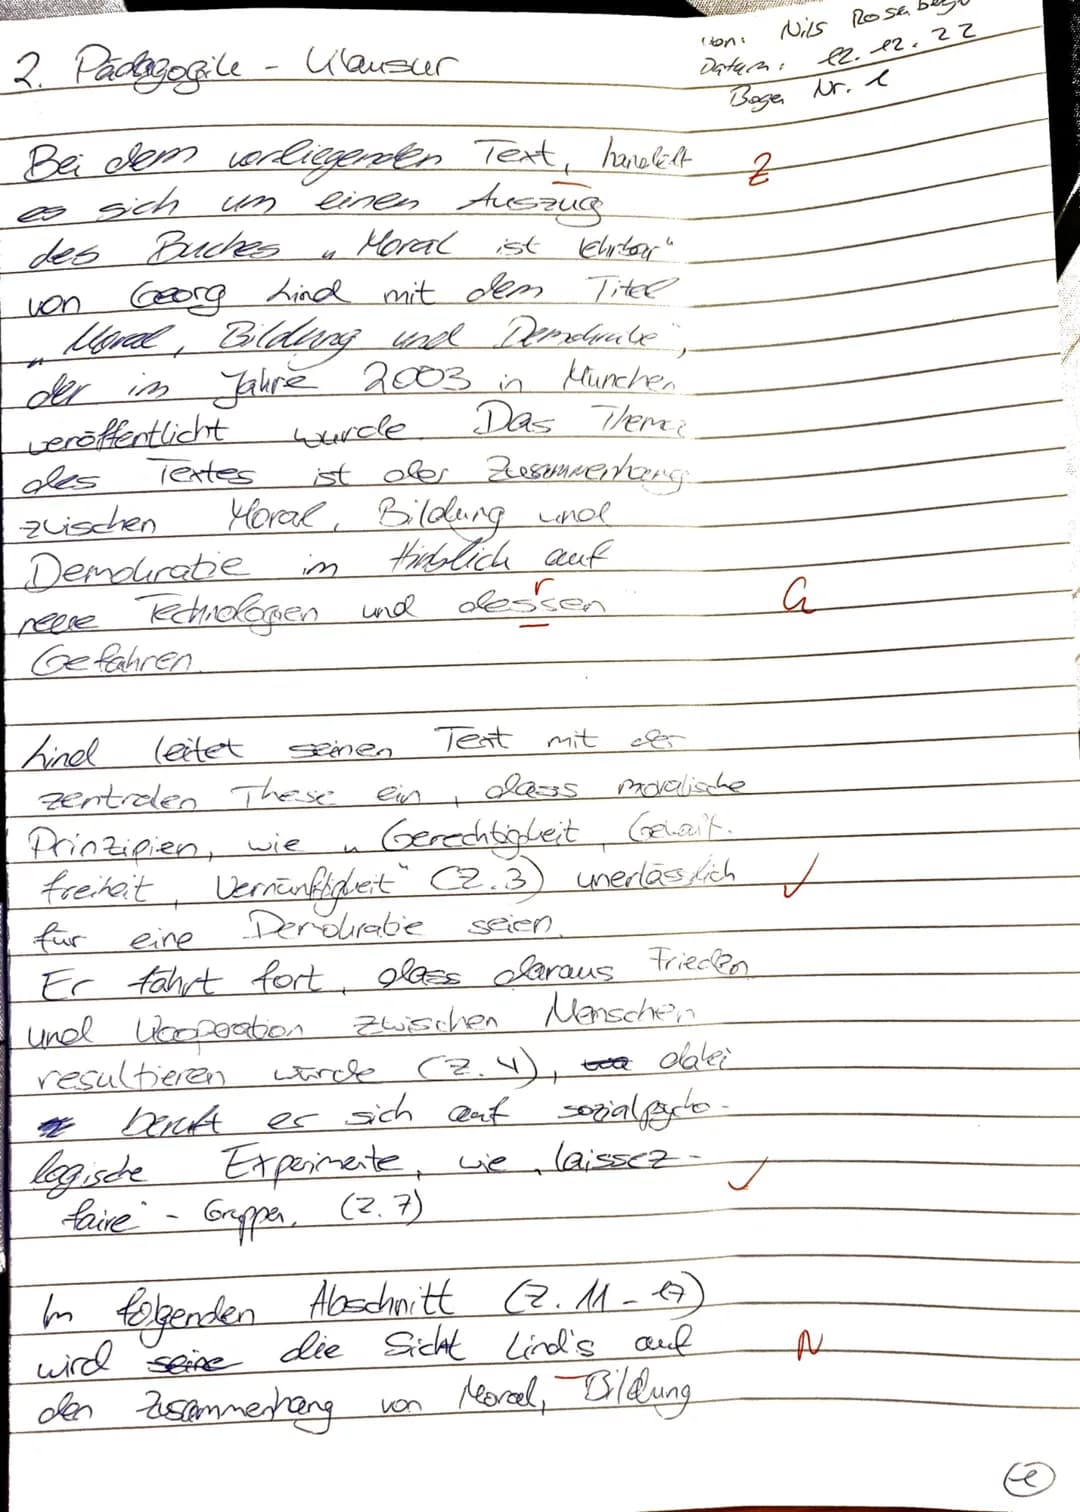 von: Nils Rosenberg
2. Pädagogik - Klausur
Datum: 12.12.22
Bogen Nr. 1
Bei dem vorliegenden Text, handelt Z
es sich um einen Auszug
des Buches „Moral ist lehrbar“
von Georg Lind mit dem Titel
„Moral, Bildung und Demokratie“,
der im Jahre 2003 in München
veröffentlicht wurde. Das Thema
des Textes ist der Zusammenhang
zwischen Moral, Bildung und
Demokratie im Hinblick auf
neue Technologien und dessen r G
Gefahren.
Lind leitet seinen Text mit der
zentralen These ein, dass moralische
Prinzipien, wie „Gerechtigkeit,
freiheit, Vernünftigkeit“ (Z.3) unerlässlich ✓
für eine Demokratie seien.
Er fährt fort, dass daraus Frieden
und Kooperation zwischen Menschen
resultieren würde (Z.4), dabei
beruft er sich auf sozialpsycho-
logische Experimente, wie „laissez-
faire“-Gruppen. (Z.7) ✓
Im folgenden Abschnitt (Z.11-17)
wird seine die Sicht Lind's auf N
den Zusammenhang von Moral, Bildung
-1-